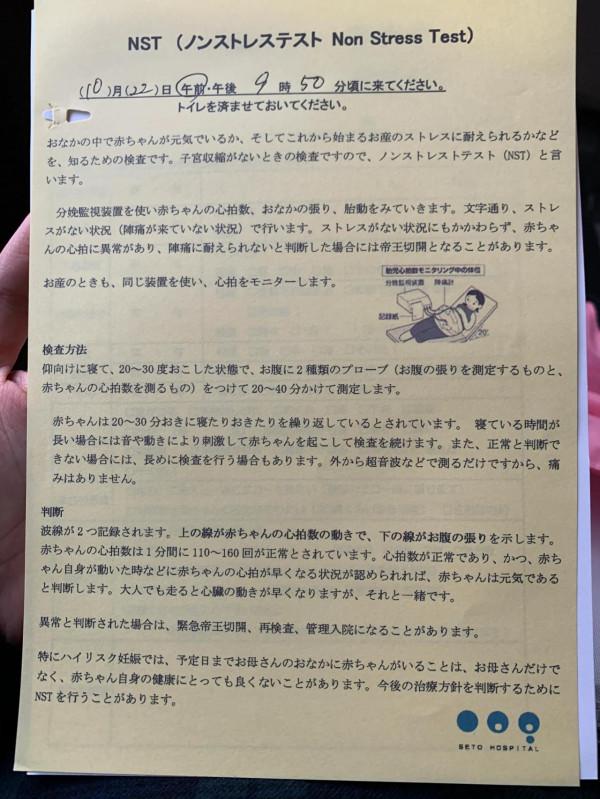 NST （ノンストレステスト Non Stress Test）
(10)月(22)日 午前・午後 9 時 50 分頃に来てください。
トイレを済ませておいてください。
おなかの中で赤ちゃんが元気でいるか、そしてこれから始まるお産のストレスに耐えられるかなど
を、知るための検査です。子宮収縮がないときの検査ですので、ノンストレストテスト（NST）と言
います。
分娩監視装置を使い赤ちゃんの心拍数、おなかの張り、胎動をみていきます。文字通り、ストレ
スがない状況（陣痛が来ていない状況）で行います。ストレスがない状況にもかかわらず、赤ちゃ
んの心拍に異常があり、陣痛に耐えられないと判断した場合には帝王切開となることがあります。
お産のときも、同じ装置を使い、心拍をモニターします。
胎児心拍数モニタリング中の体位
分娩監視装置 陣痛計
記録紙
20°
検査方法
仰向けに寝て、20～30度おこした状態で、お腹に2種類のプローブ（お腹の張りを測定するものと、
赤ちゃんの心拍数を測るもの）をつけて20～40分かけて測定します。
赤ちゃんは20～30分おきに寝たりおきたりを繰り返しているとされています。 寝ている時間が
長い場合には音や動きにより刺激して赤ちゃんを起こして検査を続けます。また、正常と判断で
きない場合には、長めに検査を行う場合もあります。外から超音波などで測るだけですから、痛
みはありません。
判断
波線が2つ記録されます。上の線が赤ちゃんの心拍数の動きで、下の線がお腹の張りを示します。
赤ちゃんの心拍数は1分間に110～160回が正常とされています。心拍数が正常であり、かつ、赤ち
ゃん自身が動いた時などに赤ちゃんの心拍が早くなる状況が認められれば、赤ちゃんは元気である
と判断します。大人でも走ると心臓の動きが早くなりますが、それと一緒です。
異常と判断された場合は、緊急帝王切開、再検査、管理入院になることがあります。
特にハイリスク妊娠では、予定日までお母さんのおなかに赤ちゃんがいることは、お母さんだけで
なく、赤ちゃん自身の健康にとっても良くないことがあります。今後の治療方針を判断するために
NSTを行うことがあります。
SETO HOSPITAL